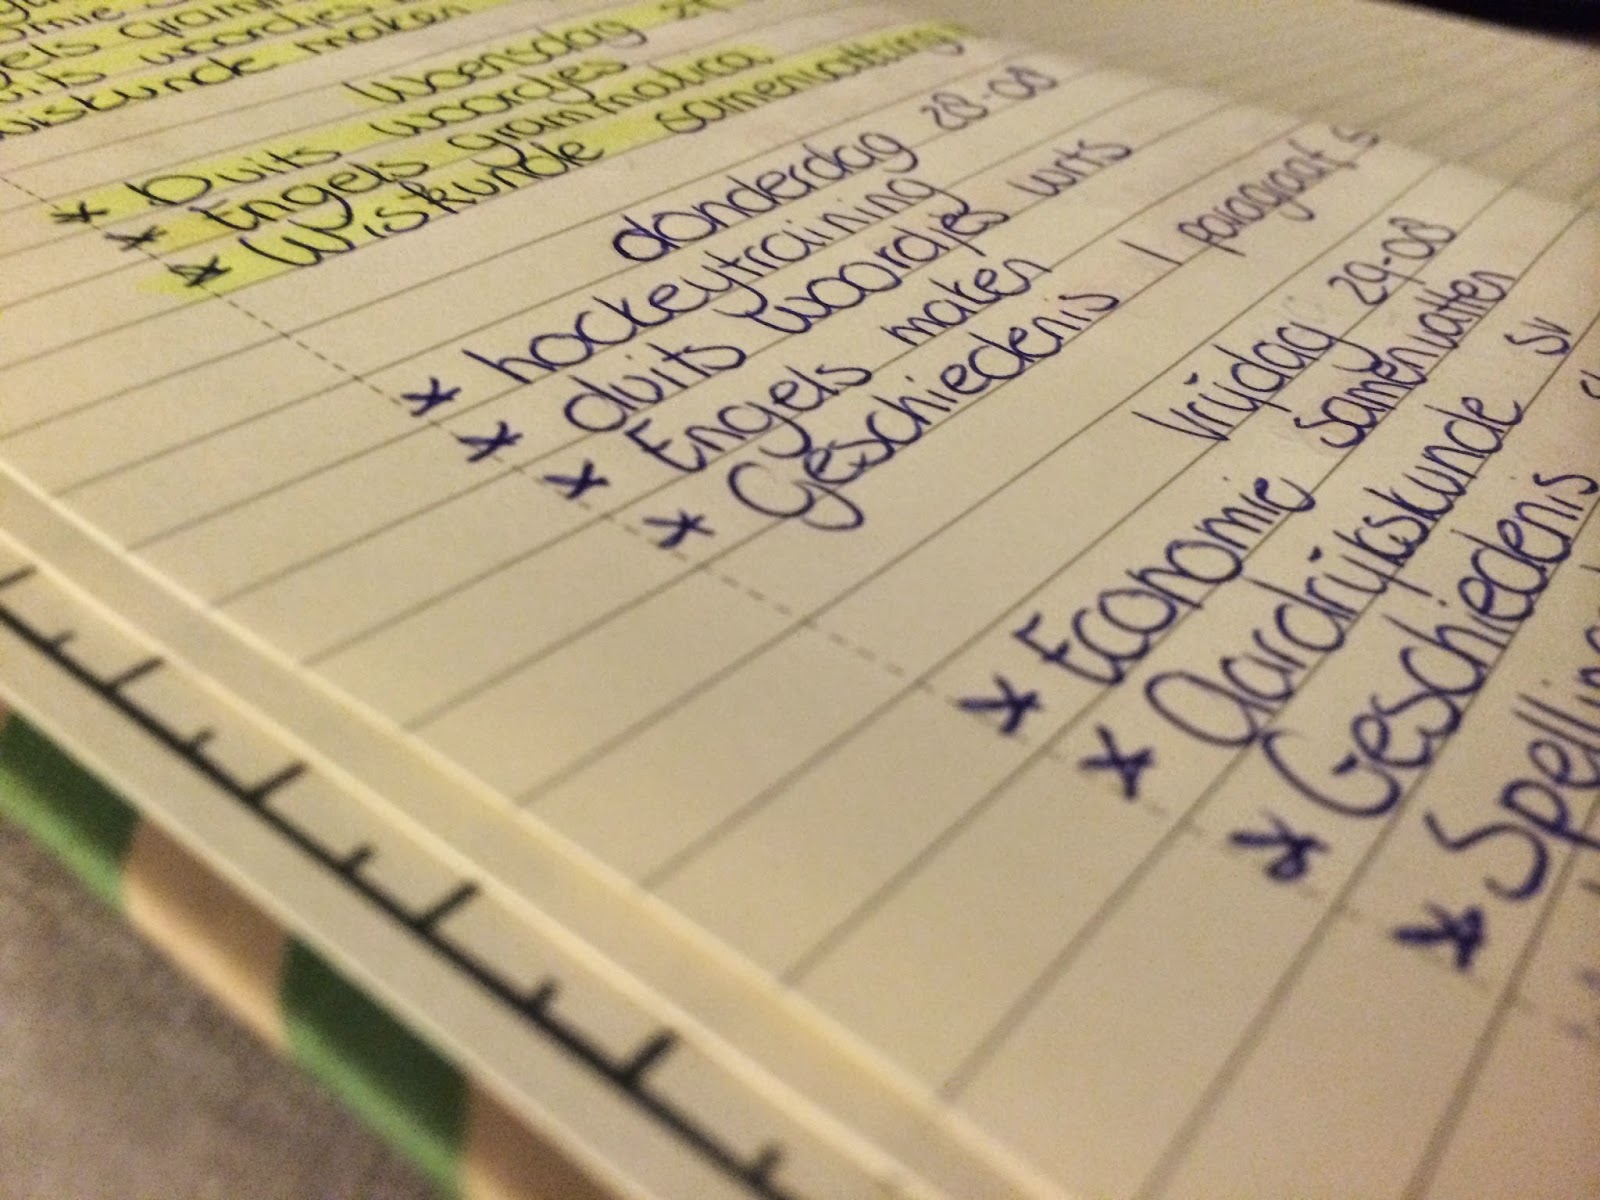 woordjes
wiskunde maken
Woensdag
* Duits woordjes
* Engels grammatica
* Wiskunde samenvatting
donderdag 28-08
* hockeytraining
* duits woordjes wrts
* Engels maken
* Geschiedenis 1 paragraaf s
Vrijdag 29-08
* Economie samenvatten
* Aardrijkskunde sv
* Geschiedenis
* Spelling